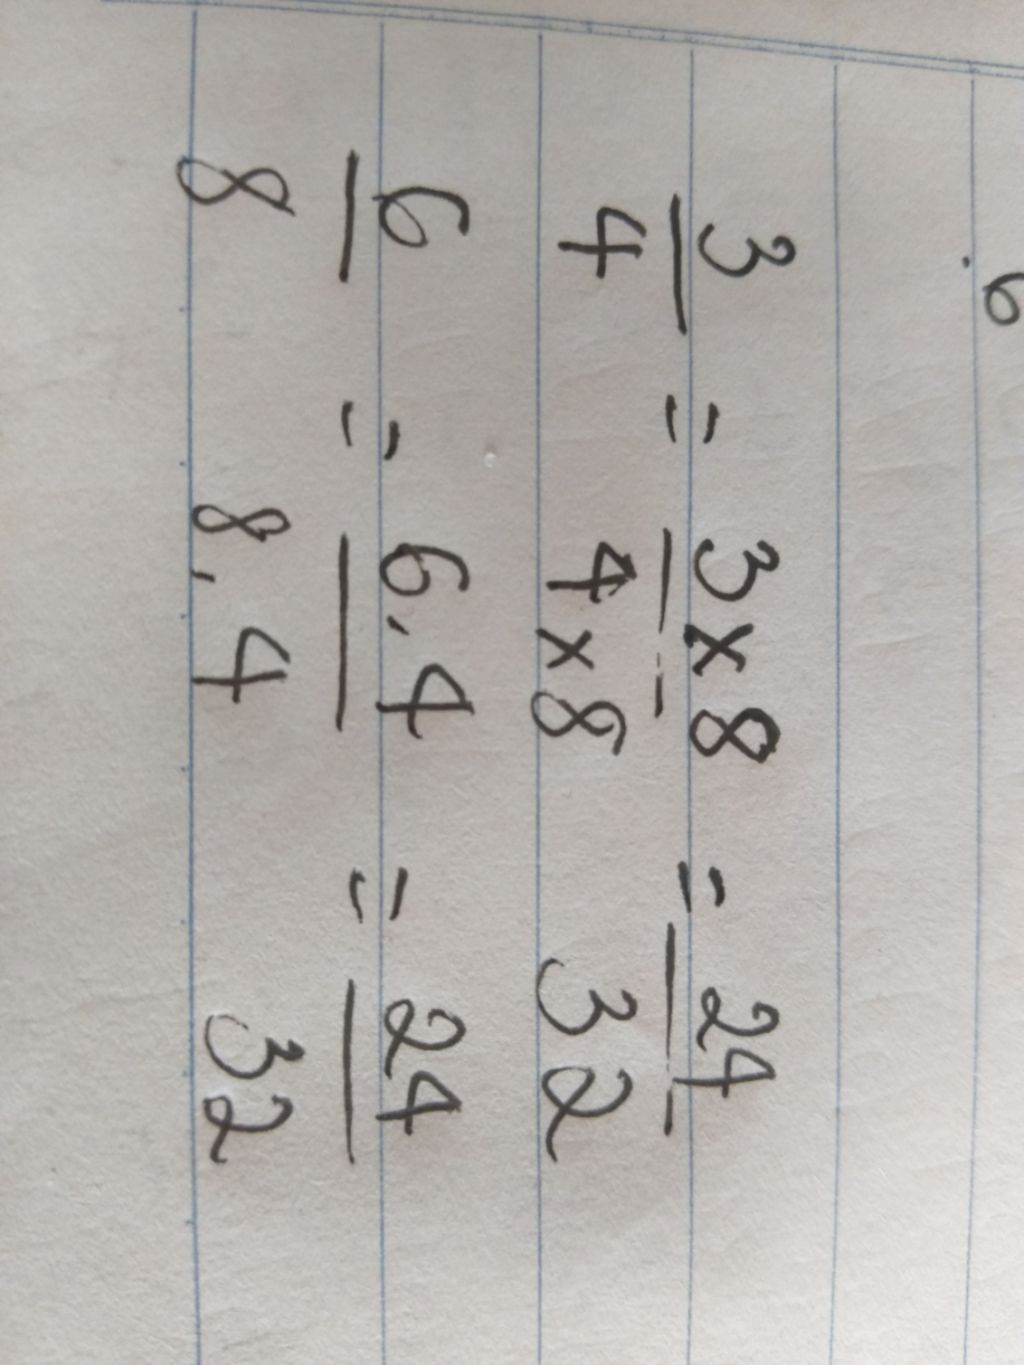 .6
3/4 = 3x8/4x8 = 24/32
6/8 = 6.4/8.4 = 24/32